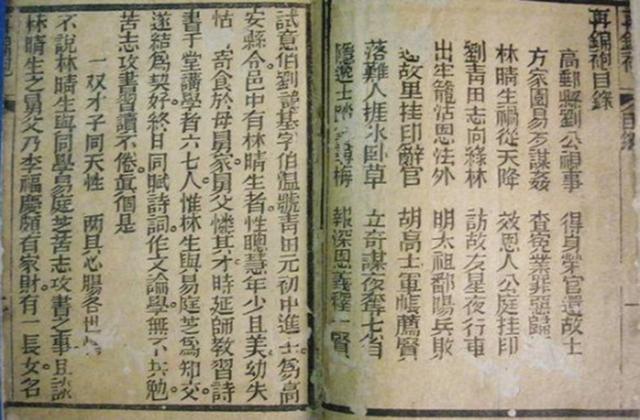 再錦袍目錄
高郵縣劉公視事　得身榮官還故士
方家園易歹謀姦　查冤業罪惡歸
林晴生禍從天降　效恩人公庭挂印
劉青田志向綠林　訪故友星夜行車
出牢籠怙恩法外　明太祖鄱陽兵敗
返故里挂印辭官　胡高士軍帳薦賢
落難人捱冰臥草　立奇謀夜奪七省
隱逸士踏　梅　報深恩義釋一賢
試意伯劉諱基字伯溫號青田元初中進士爲高
安縣令邑中有林晴生者性聰慧年少且美幼失
怙寄食於母舅家舅父憐其才時延師教習詩
書于堂講學者六七人惟林生與易庭芝爲知交
遂結爲契好終日同賦詩詞作文論學無不共勉
苦志攻書習讀不倦真個是
一双才子同天性　两且心腸各世
不說林晴生與同學易庭芝苦志攻書之事且談
林晴生之舅父乃李福慶頗有家財有一長女名